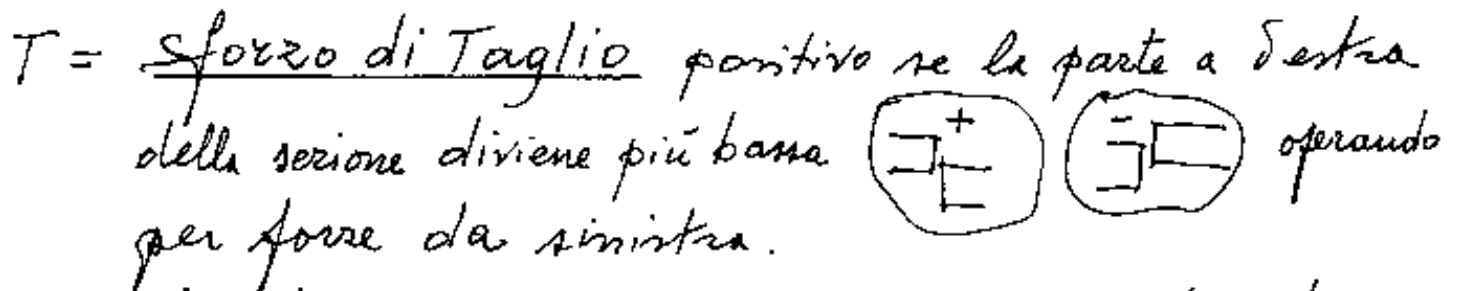 T = Sforzo di Taglio positivo se la parte a destra
della sezione diviene più bassa + - operando
per forze da sinistra.